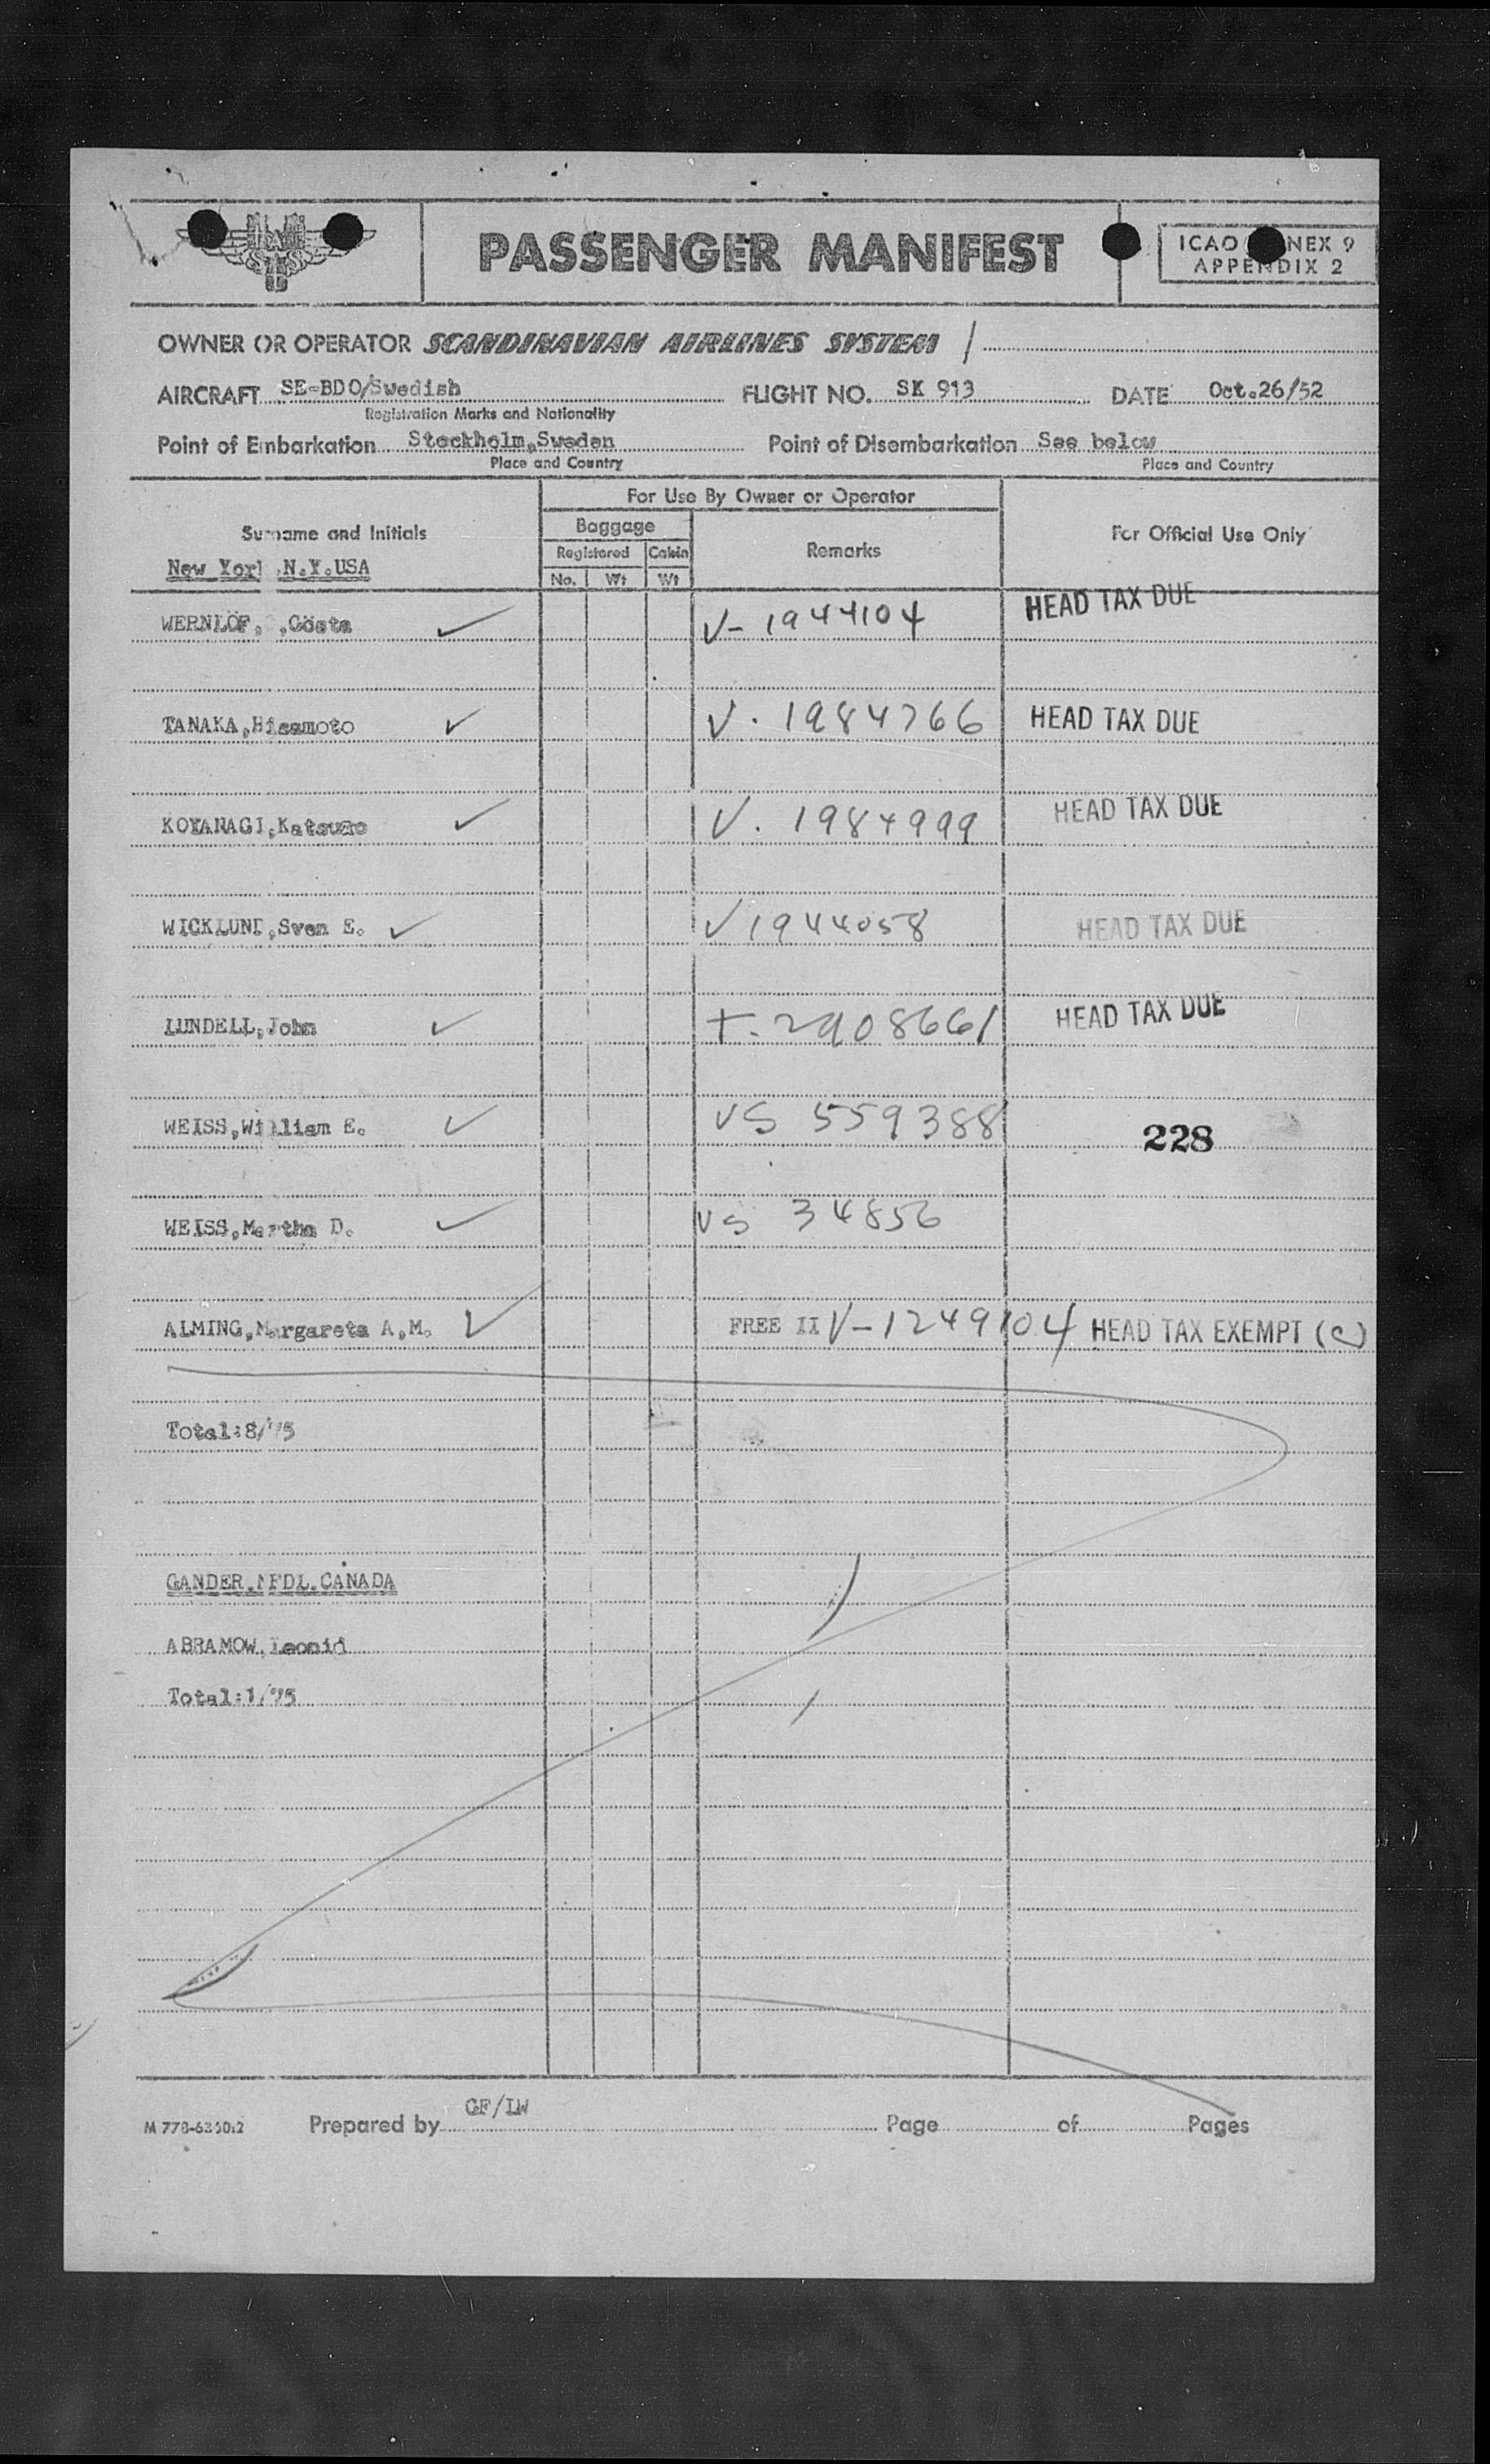 PASSENGER MANIFEST
ICAO NEX 9
APPENDIX 2
OWNER OR OPERATOR SCANDINAVIAN AIRLINES SYSTEM
AIRCRAFT SE-BDO/Swedish FLIGHT NO. SK 913 DATE Oct.26/52
Registration Marks and Nationality
Point of Embarkation Stockholm,Sweden Point of Disembarkation See below
Place and Country Place and Country
For Use By Owner or Operator
Surname and Initials Baggage Remarks For Official Use Only
Registered Cabin
New York N.Y.USA
No. Wt Wt
WERNLÖF, ,Gösta V-1944104 HEAD TAX DUE
TANAKA,Hisamoto V. 1984766 HEAD TAX DUE
KOYANAGI,Katsumo V. 1984999 HEAD TAX DUE
WICKLUND,Sven E. V1944058 HEAD TAX DUE
LUNDELL,John T-2908661 HEAD TAX DUE
WEISS,William E. VS 559388 228
WEISS,Martha D. VS 34856
ALMING,Margareta A.M. FREE II V-1249104 HEAD TAX EXEMPT (c)
Total:8/75
GANDER.NFDL.CANADA
ABRAMOW,Leonid
Total:1/75
M 778-6360:2 Prepared by GF/LW Page of Pages